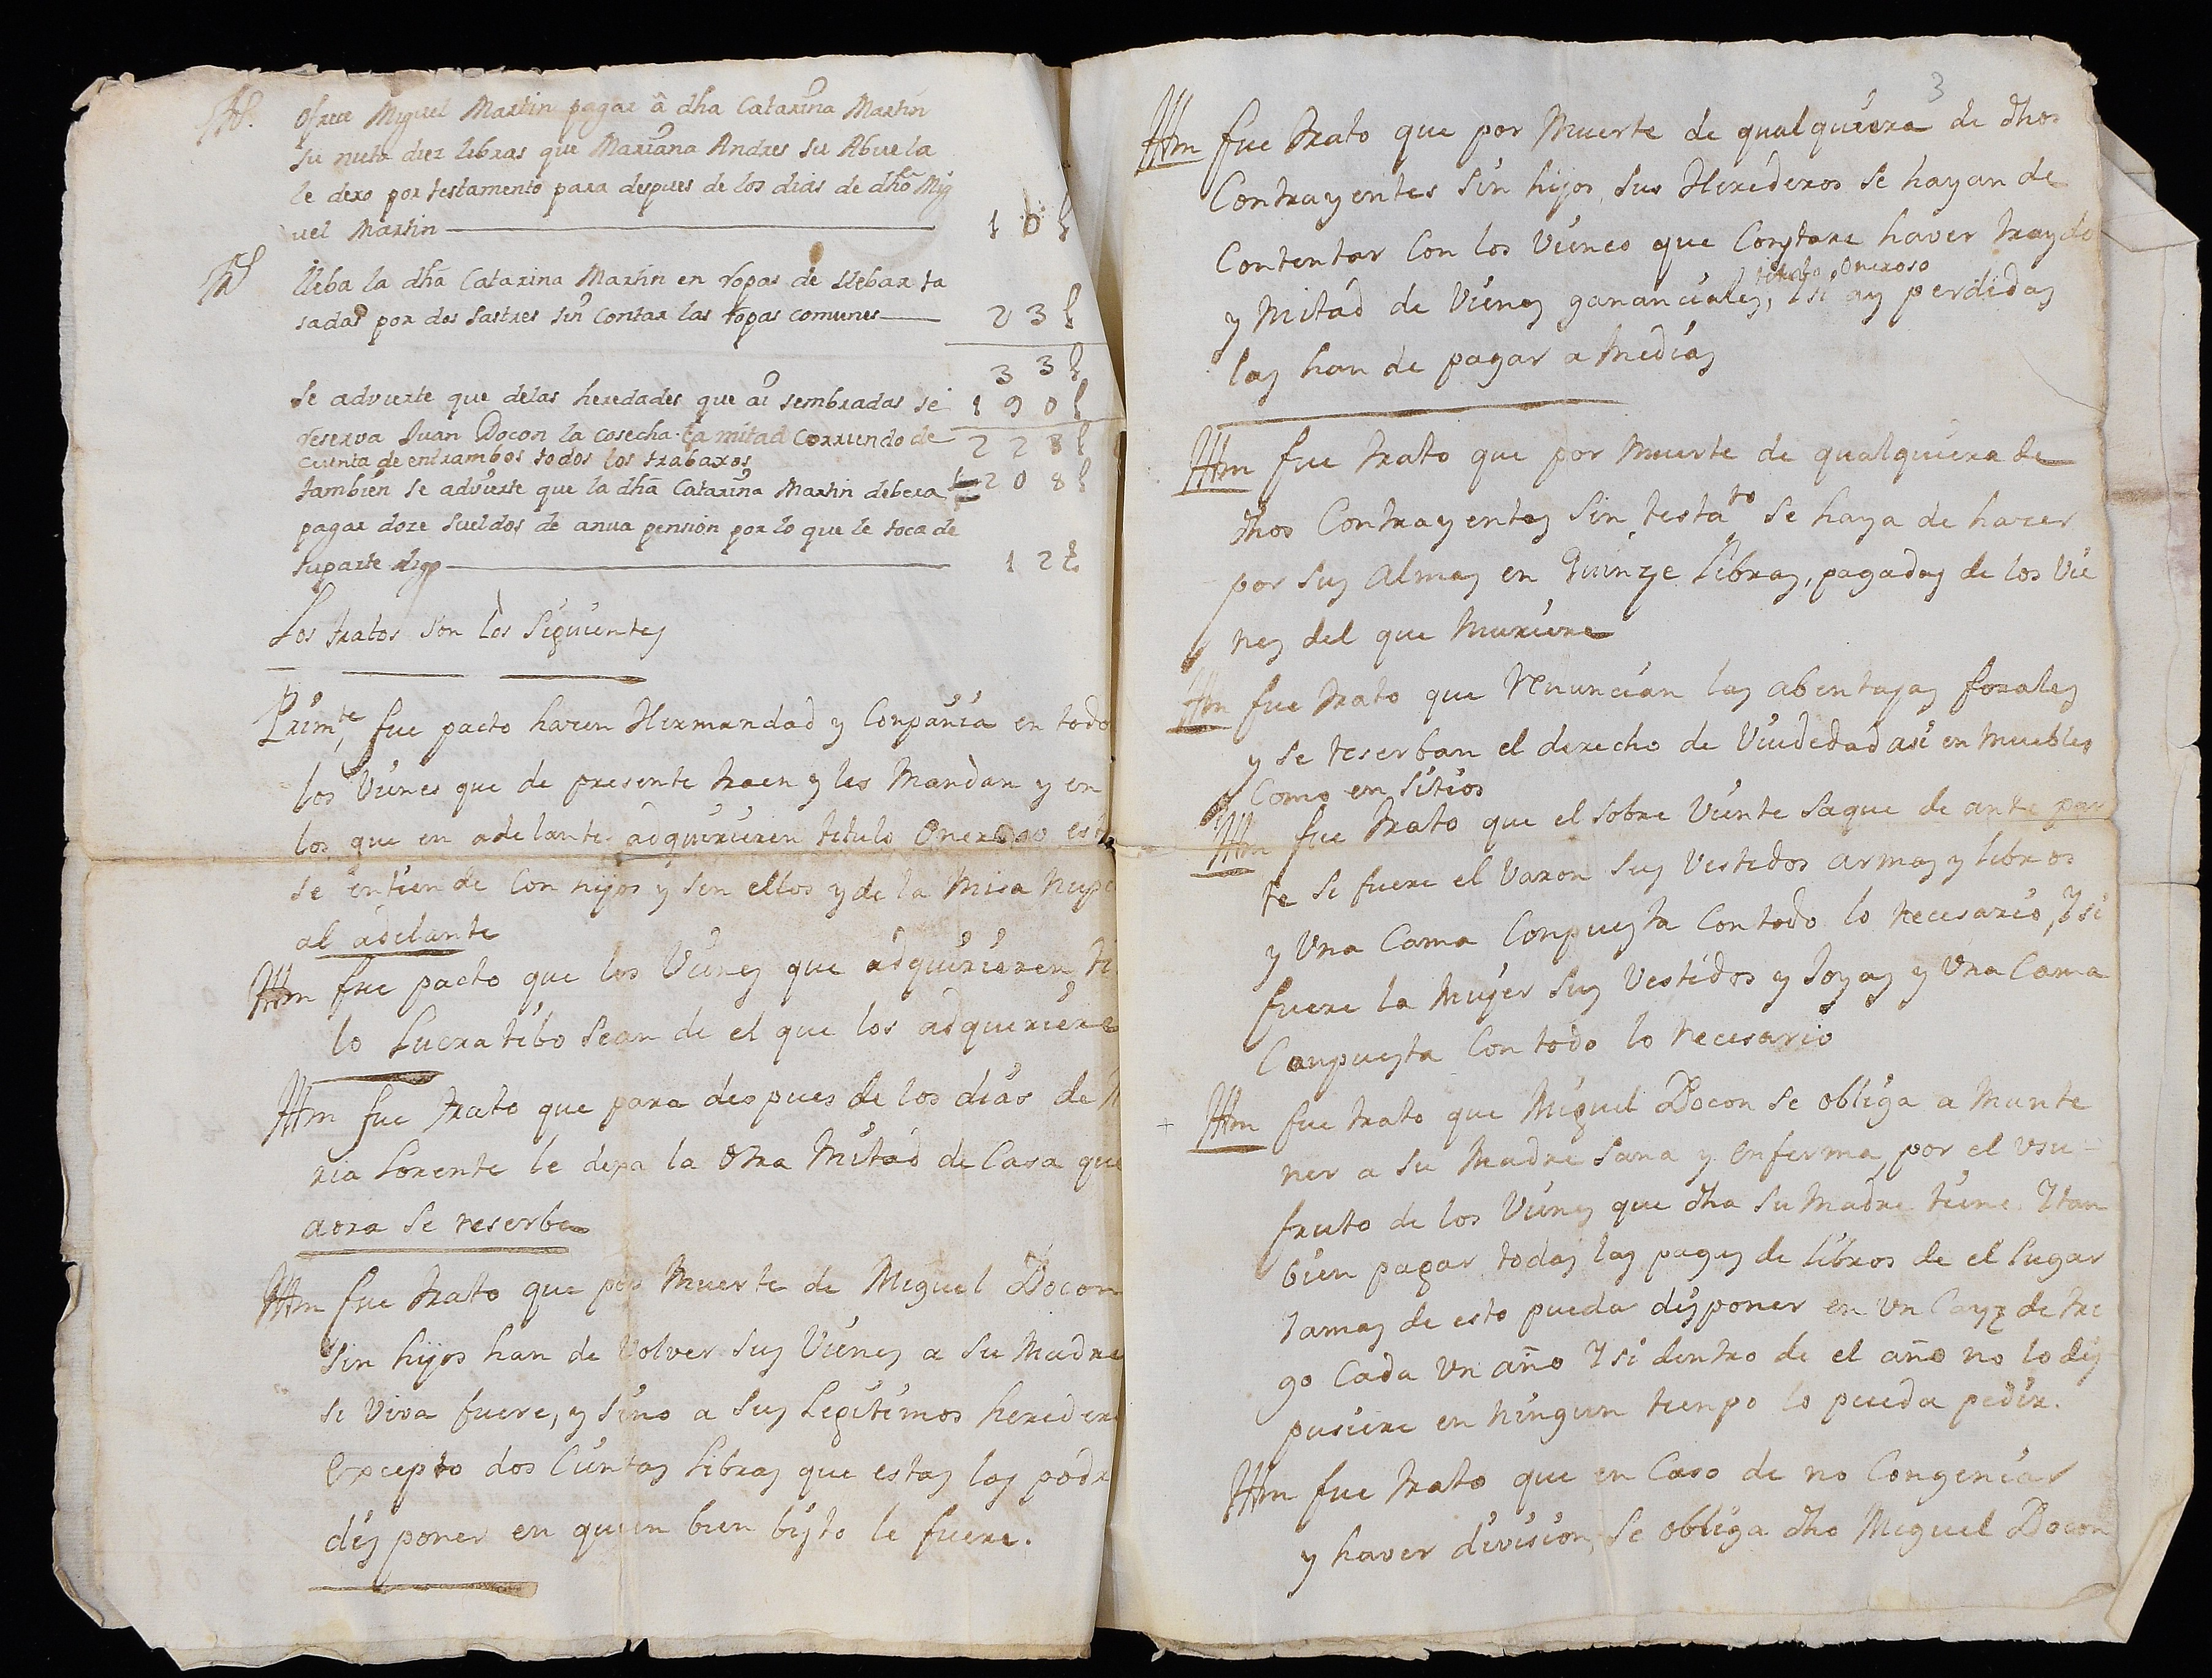 Itt. ofrece Miguel Martin pagar â dha Catarina Martin
su nieta diez libras que Mariana Andres su Abuela
le dexo por testamento para despues de los dias de dho Mig
uel Martin 10 l
Itt lleba la dha Catarina Martin en ropas de llebar ta
sadas por dos sastres sin contar las ropas comunes 23 l
33 l
Se advierte que delas heredades que ai sembradas se 190 l
reserva Juan Docon la cosecha la mitad corriendo de 228 l
cuenta de entrambos todos los trabaxos
tambien se advierte que la dha Catarina Martin debera 208 l
pagar doze sueldos de anua pension por lo que le toca de
su parte digo 12 l
Los tratos son los Siguientes
Primte, fue pacto hacen Hermandad y Conpañia en todo
los Vienes que de presente traen y les Mandan y en
los que en adelante adquirieren titulo Oneroso est
se entiende Con hijos y sin ellos y de la Misa Nupc
al adelante
Ittm fue pacto que los Vienes que adquirieren ti
lo Lucratibo sean de el que los adquiriere
Ittm fue trato que para despues de los dias de M
ria Lorente le dexa la Otra Mitad de Casa que
aora se reserba
Ittm fue trato que por Muerte de Miguel Docon
Sin hijos han de Volver Sus Vienes a su Madre
si Viva fuere, y sino a Sus Legitimos heredero
Excepto dos Cientas Libras que estas las podr
disponer en quien bien bisto le fuere.
3
Ittm fue trato que por Muerte de qualquiera de dhos
Contrayentes sin hijos, sus Herederos se hayan de
Contentar Con los Vienes que Constare haver traydo
titulo Oneroso
y Mitad de Vienes gananciales, Y si ay perdidas
las han de pagar a Medias
Ittm fue trato que por Muerte de qualquiera de
dhos Contrayentes Sin testato se haya de hacer
por Sus Almas en Quinze Libras, pagadas de los Vie
nes del que Muriere
Ittm fue trato que renuncian las abentajas forales
y se reserban el derecho de Viudedad asi en Muebles
Como en Sitios
Ittm fue trato que el sobre Viente saque de ante par
te Si fuere el Varon Sus Vestidos armas y libros
y Una Cama Conpuesta Con todo lo necesario, Y si
fuere la Mujer Sus Vestidos y Joyas y Una Cama
Conpuesta Con todo lo necesario
+ Ittm fue trato que Miguel Docon Se obliga a Mante
ner a Su Madre Sana y Enferma, por el Vsu
fruto de los Vienes que dha Su Madre tiene Y tan
bien pagar todas las pagas de libros de el Lugar
Y amas de esto pueda disponer en Vn Cayz de tri
go Cada Vn año Y si dentro de el año no lo dis
pusiere en Ningun tienpo lo pueda pedir.
Ittm fue trato que en Caso de no Congeniar
y haver division, Se obliga dho Miguel Docon